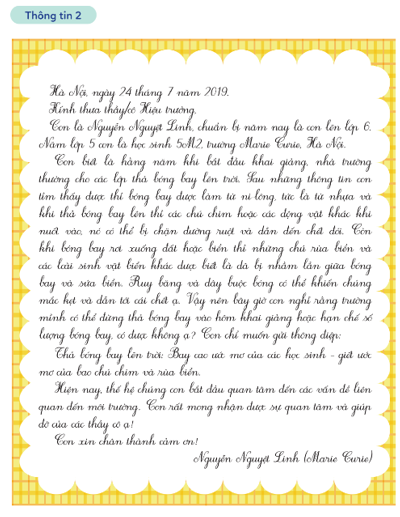 Thông tin 2
Hà Nội, ngày 24 tháng 7 năm 2019.
Kính thưa thầy/cô Hiệu trưởng,
Con là Nguyễn Nguyệt Linh, chuẩn bị năm nay là con lên lớp 6.
Năm lớp 5 con là học sinh 5M2, trường Marie Curie, Hà Nội.
Con biết là hằng năm khi bắt đầu khai giảng, nhà trường
thường cho các lớp thả bóng bay lên trời. Sau những thông tin con
tìm thấy được thì bóng bay được làm từ ni lông, tức là từ nhựa và
khi thả bóng bay lên thì các chú chim hoặc các động vật khác khi
nuốt vào, nó có thể bị chặn đường ruột và dẫn đến chết đói. Còn
khi bóng bay rơi xuống đất hoặc biển thì những chú rùa biển và
các loài sinh vật biển khác được biết là đã bị nhầm lẫn giữa bóng
bay và sứa biển. Ruy băng và dây buộc bóng có thể khiến chúng
mắc kẹt và dẫn tới cái chết ạ. Vậy nên bây giờ con nghĩ rằng trường
mình có thể dừng thả bóng bay vào hôm khai giảng hoặc hạn chế số
lượng bóng bay, có được không ạ? Con chỉ muốn gửi thông điệp:
Thả bóng bay lên trời: Bay cao ước mơ của các học sinh - giết ước
mơ của bao chú chim và rùa biển.
Hiện nay, thế hệ chúng con bắt đầu quan tâm đến các vấn đề liên
quan đến môi trường. Con rất mong nhận được sự quan tâm và giúp
đỡ của các thầy cô ạ!
Con xin chân thành cảm ơn!
Nguyễn Nguyệt Linh (Marie Curie)